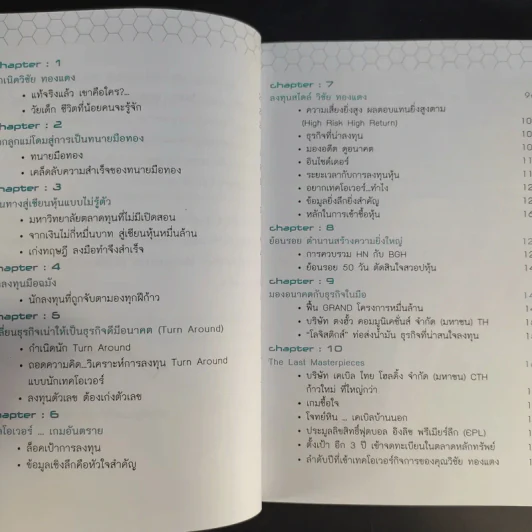 chapter : 1
กำเนิดวิชัย ทองแตง
• แท้จริงแล้ว เขาคือใคร?...
• วัยเด็ก ชีวิตที่น้อยคนจะรู้จัก
chapter : 2
จากลูกแม่โดมสู่การเป็นทนายมือทอง
• ทนายมือทอง
• เคล็ดลับความสำเร็จของทนายมือทอง
chapter : 3
เส้นทางสู่เซียนหุ้นแบบไม่รู้ตัว
• มหาวิทยาลัยตลาดทุนที่ไม่มีเปิดสอน
• จากเงินไม่กี่หมื่นบาท สู่เซียนหุ้นหมื่นล้าน
• เก่งทฤษฎี ลงมือทำจึงสำเร็จ
chapter : 4
นักลงทุนมือฉมัง
• นักลงทุนที่ถูกจับตามองทุกฝีก้าว
chapter : 5
เปลี่ยนธุรกิจเน่าให้เป็นธุรกิจดีมีอนาคต (Turn Around)
• กำเนิดนัก Turn Around
• ถอดความคิด...วิเคราะห์การลงทุน Turn Around
แบบนักเทคโอเวอร์
• ลงทุนตัวเลข ต้องเก่งตัวเลข
chapter : 6
เทคโอเวอร์ ... เกมอันตราย
• ล็อคเป้าการลงทุน
• ข้อมูลเชิงลึกคือหัวใจสำคัญ
chapter : 7
ลงทุนสไตล์ วิชัย ทองแตง
• ความเสี่ยงยิ่งสูง ผลตอบแทนยิ่งสูงตาม
(High Risk High Return)
• ธุรกิจที่น่าลงทุน
• มองอดีต ดูอนาคต
• อินไซด์เดอร์
• ระยะเวลากับการลงทุนหุ้น
• อยากเทคโอเวอร์...ทำไง
• ข้อมูลยิ่งลึกยิ่งสำคัญ
• หลักในการเข้าซื้อหุ้น
chapter : 8
ย้อนรอย ตำนานสร้างความยิ่งใหญ่
• การควบรวม HN กับ BGH
• ย้อนรอย 50 วัน ตัดสินใจสวอปหุ้น
chapter : 9
มองอนาคตกับธุรกิจในมือ
• ฟื้น GRAND โครงการหมื่นล้าน
• บริษัท ตงฮั้ว คอมมูนิเคชั่นส์ จำกัด (มหาชน) TH
• "โลจิสติกส์" ท่อส่งน้ำมัน ธุรกิจที่น่าสนใจลงทุน
chapter : 10
The Last Masterpieces
• บริษัท เคเบิล ไทย โฮลดิ้ง จำกัด (มหาชน) CTH
ก้าวใหม่ ที่ใหญ่กว่า
• เกมซื้อใจ
• โจทย์หิน ... เคเบิลบ้านนอก
• ประมูลลิขสิทธิ์ฟุตบอล อิงลิช พรีเมียร์ลีก (EPL)
• ตั้งเป้า อีก 3 ปี เข้าจดทะเบียนในตลาดหลักทรัพย์
• ลำดับปีที่เข้าเทคโอเวอร์กิจการของคุณวิชัย ทองแตง